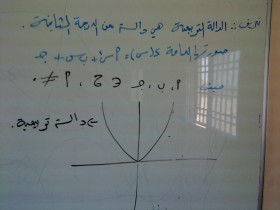 تعريف :- الدالة التربيعية هي دالة من الدرجة الثانية
صورتها العامة د(س) = أس٢ + ب س + جـ
حيث أ، ب، جـ ∈ ح ، أ ≠ ٠
دالة تربيعية.